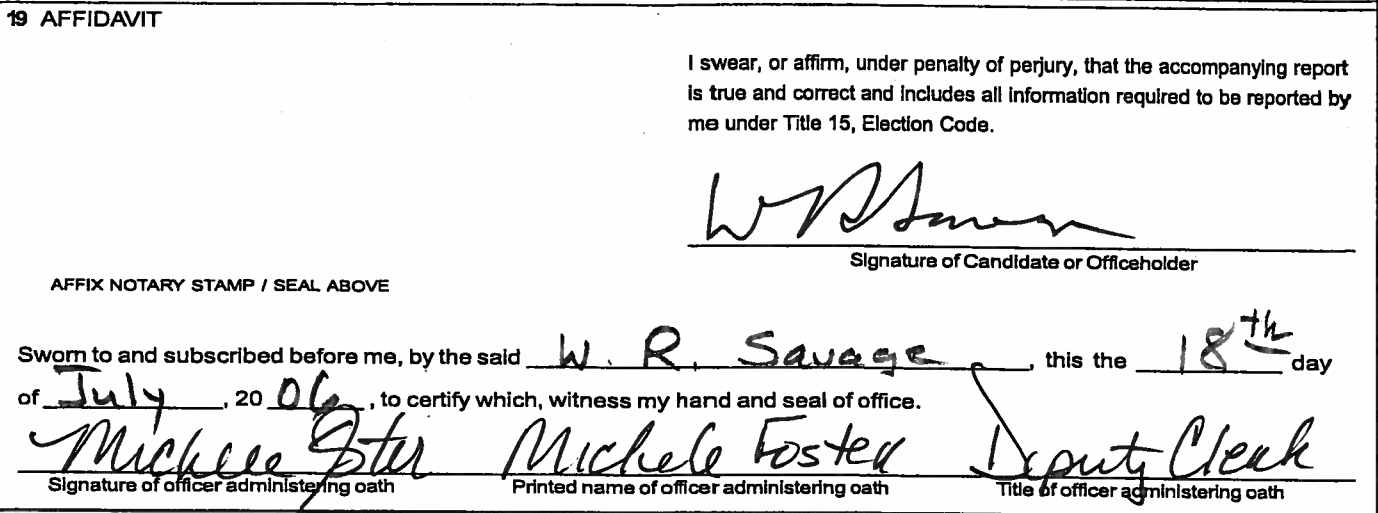 19 AFFIDAVIT
I swear, or affirm, under penalty of perjury, that the accompanying report
is true and correct and includes all information required to be reported by
me under Title 15, Election Code.
W R Savage
Signature of Candidate or Officeholder
AFFIX NOTARY STAMP / SEAL ABOVE
Sworn to and subscribed before me, by the said W. R. Savage, this the 18th day
of July, 20 06, to certify which, witness my hand and seal of office.
Michele Foster Michele Foster Deputy Clerk
Signature of officer administering oath Printed name of officer administering oath Title of officer administering oath